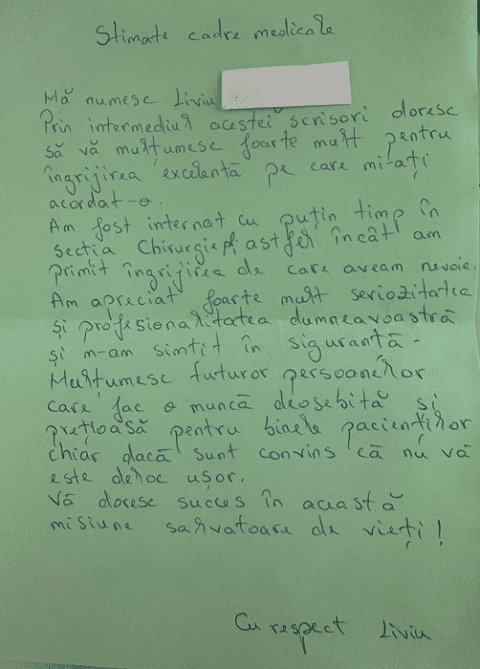 Stimate cadre medicale
Mă numesc Liviu
Prin intermediul acestei scrisori doresc
să vă mulțumesc foarte mult pentru
îngrijirea excelentă pe care mi-ați
acordat-o.
Am fost internat cu puțin timp în
secția Chirurgie, astfel încât am
primit îngrijirea de care aveam nevoie.
Am apreciat foarte mult seriozitatea
și profesionalitatea dumneavoastră
și m-am simtit în siguranță.
Mulțumesc futuror persoanelor
care fac o muncă deosebită și
prețioasă pentru binele pacienților
chiar dacă sunt convins că nu vă
este deloc ușor.
Vă doresc succes în această
misiune salvatoare de vieți!
Cu respect Liviu